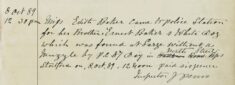 8 Oct 89.
12.30pm Miss Edith Baker Came to police Station
for her Brother Ernest Baker's White Dog
which was found at Large without a
Muzzle by P.C. 87 Day in North Street
Stratford on, 8 Oct. 89. 12 noon paid
Inspector